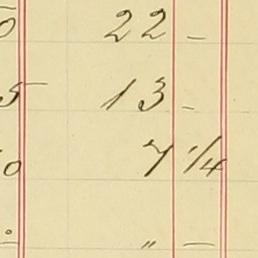 0 22 -
5 13 -
0 7 1/4
" -